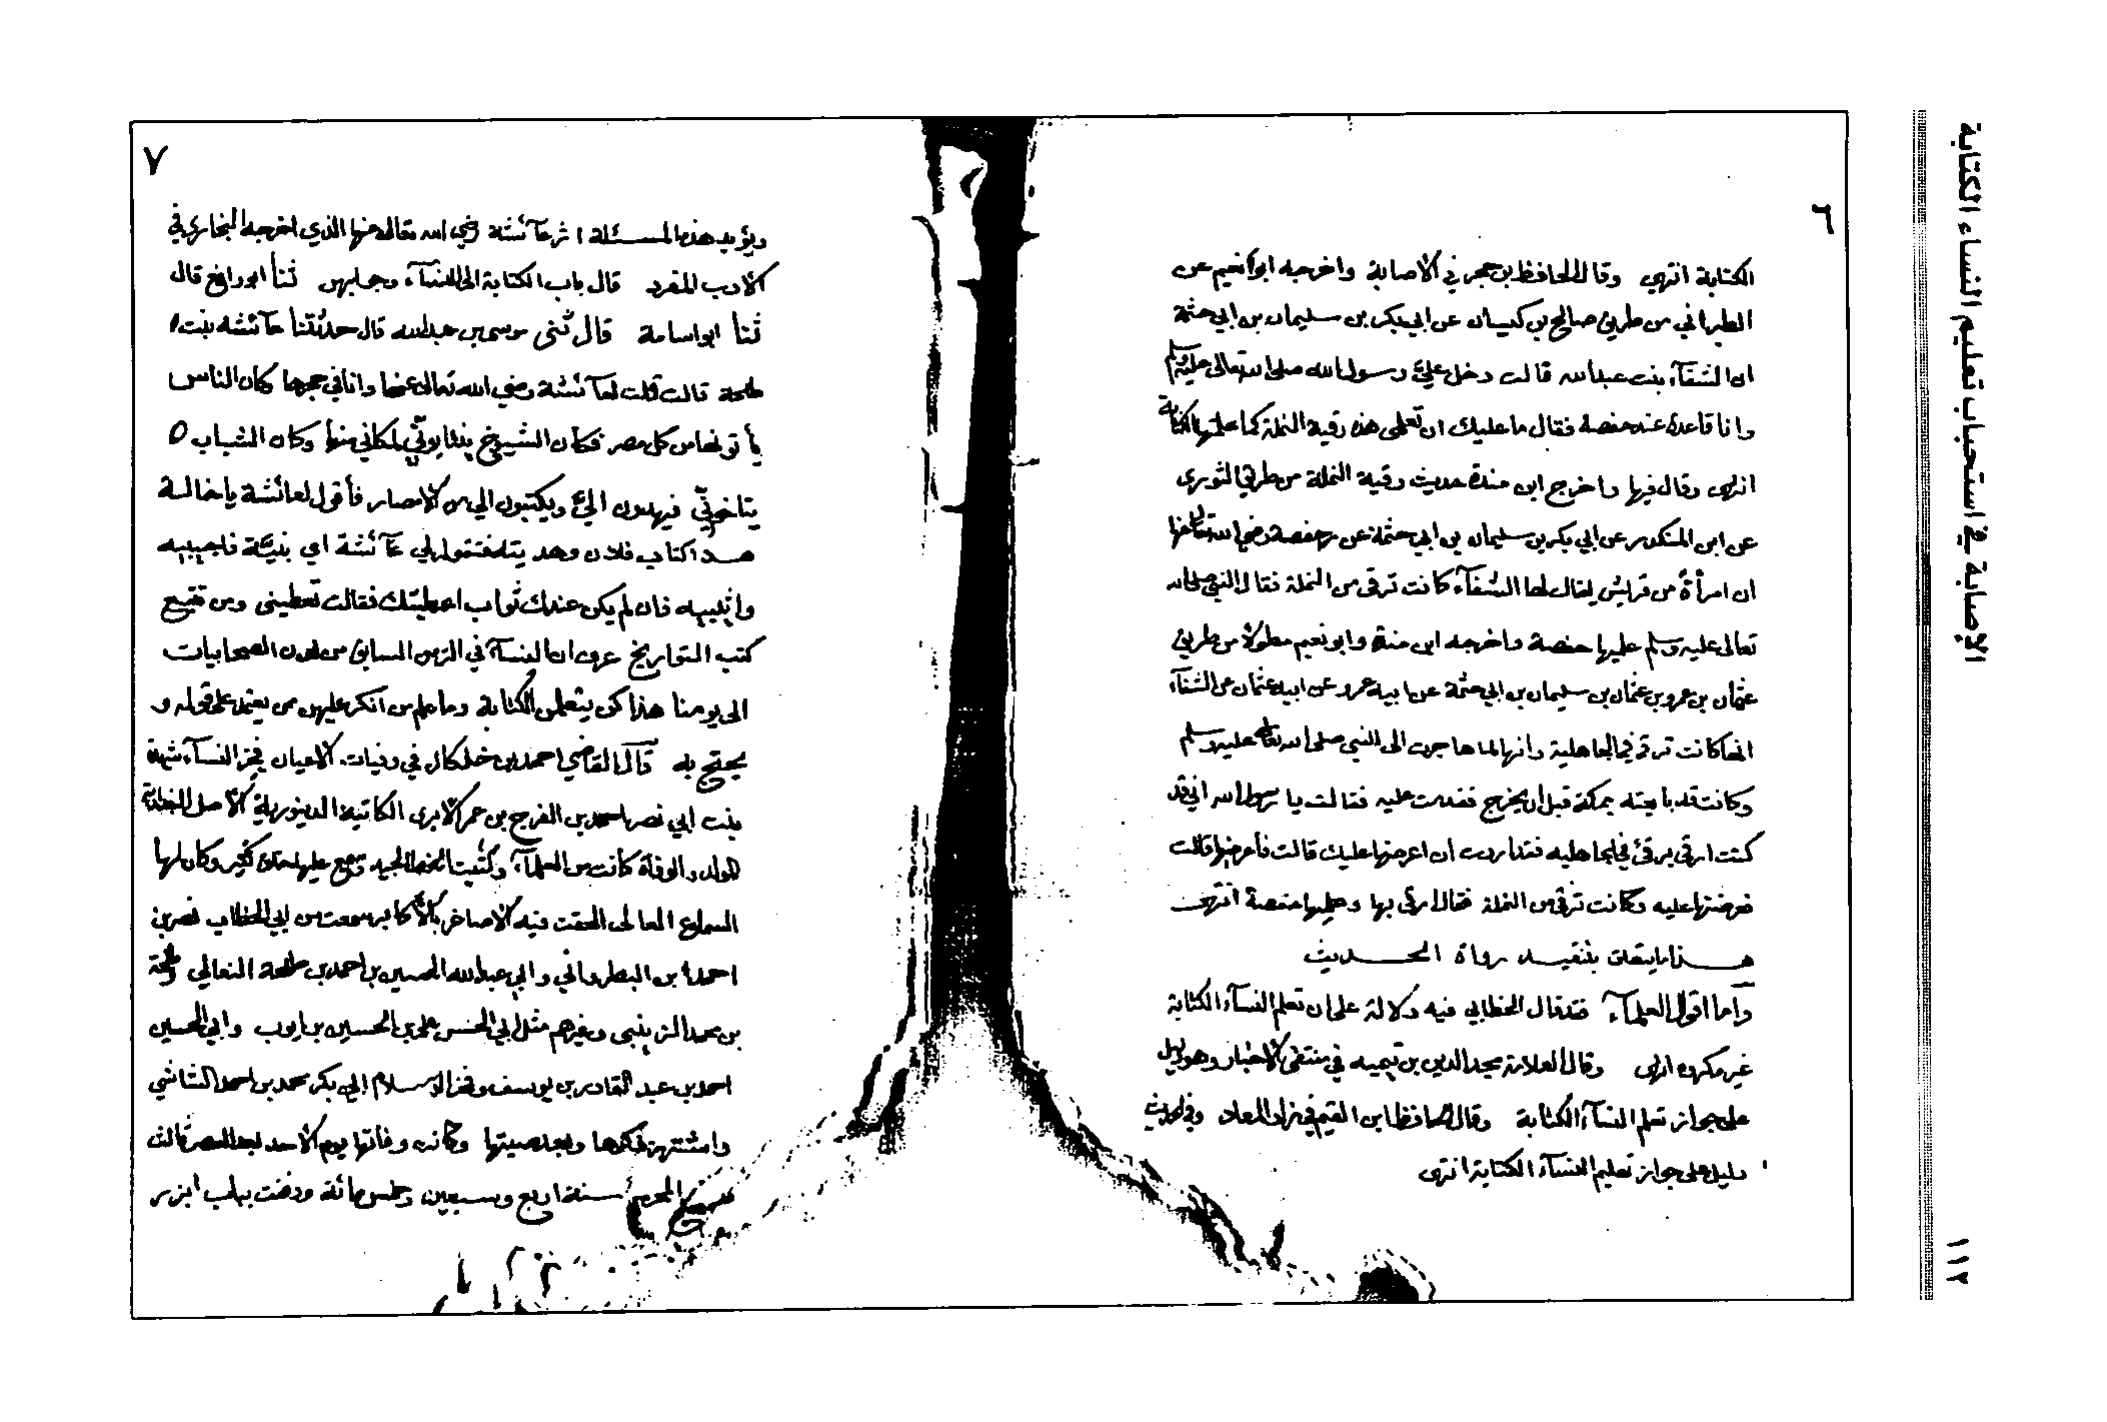 الإصابة في استحباب تعليم النساء الكتابة
١١٢
٦
الكتابة انتهى وقال الحافظ بن حجر في الاصابة واخرجه ابو نعيم عن
الطبراني من طريق صالح بن كيسان عن ابي بكر بن سليمان بن ابي حثمة
ان الشفآء بنت عبد الله قالت دخل عليّ رسول الله صلى الله تعالى عليه وسلم
وانا قاعدة عند حفصة فقال ما عليك ان تعلمى هذه رقية النملة كما علمتها الكتابة
انتهى وقال فيها واخرج ابن مندة حديث رقية النملة من طريق الثورى
عن ابن المنكدر عن ابي بكر بن سليمان بن ابي حثمة عن حفصة رضي الله تعالى عنها
ان امرأة من قرليش يقال لها الشفآء كانت ترقى من النملة فقال النبي صلى الله
تعالى عليه وسلم عليها حفصة واخرجه ابن مندة وابو نعيم مطولا من طريق
عثمان بن عمرو بن عثمان بن سليمان بن ابي حثمة عن ابيه عمرو عن ابيه عثمان عن الشفآء
انها كانت ترقى في الجاهلية وانها لما هاجرت الى النبي صلى الله تعالى عليه وسلم
وكانت قد بايعته بمكة قبل ان يخرج فقدمت عليه فقالت يا رسول الله اني قد
كنت ارقى برقىً في الجاهليه فقد اردت ان اعرضها عليك قالت فأعرضها قالت
فعرضتها عليه وكانت ترقى من النملة فقال ارقي بها وعلميها حفصة انتهى
هذا ما يتعلق بتنقيد رواة الحديث
وآما اقوال العلمآء فقد قال الخطابي فيه دلالة على ان تعلم النسآء الكتابة
غير مكروه انتهى وقال العلامة مجد الدين بن تيميه في منتقى الاخبار وهو دليل
على جواز تعلم النسآء الكتابة وقال الحافظ ابن القيم في زاد المعاد وفي الحديث
دليل على جواز تعليم النسآء الكتابة انتهى
٧
ويؤيد هذه المسئلة اثر عآئشة رضي الله تعالى عنها الذي اخرجه البخارى في
الادب المفرد قال باب الكتابة الى النسآء وجوابهن ثنأ ابو رافع قال
ثنأ ابو اسامة قال ثنى موسى بن عبد الله قال حدثتنا عآئشه بنت
طلحة قالت قلت لعآئشة رضي الله تعالى عنها وانا في حجرها كان الناس
يأتونها من كل مصر فكان الشيوخ ينتابونيّ لمكاني منها وكان الشباب
يتاخونيّ فيهدون اليّ ويكتبون الي من الامصار فأقول لعائشة يا خالة
هذا كتاب فلان وهديته فتقول لي عآئشة اي بنيّة فاجيبيه
واثيبيه فان لم يكن عندك ثواب اعطيتك فقالت تعطيني ومن تتبع
كتب التواريخ عرف ان النسآء في الزمن السابق من لدن الصحابيات
الى يومنا هذا كن يتعلمن الكتابة وما علم من انكر عليهن ممن يعتمد على قوله و
يحتج به قال القاضي احمد بن خلكان في وفيات الاعيان فخر النسآء شهدة
بنت ابي نصر احمد بن الفرج بن عمر الابرى الكاتبة الدينورية الاصل البغدادية
المولد والوفاة كانت من العلمآء وكتبت الخط الجيد وسمع عليها خلق كثير وكان لها
السماع العالى الحقت فيه الاصاغر بالأكابر سمعت من ابي الخطاب نصر بن
احمد ابن البطرواني وابي عبد الله الحسين بن احمد بن طلحة النعالي وطلحة
بن محمد الزينبى وغيرهم مثل ابي الحسن علي بن الحسين بن ايوب وابي الحسين
احمد بن عبد القادر بن يوسف وفخر الاسلام ابي بكر محمد بن احمد الشاشي
واشتهر ذكرها وبعد صيتها وكانت وفاتها يوم الاحد بعد العصر ثالث
عشر المحرم سنة اربع وسبعين وخمس مائة ودفنت بباب ابزر